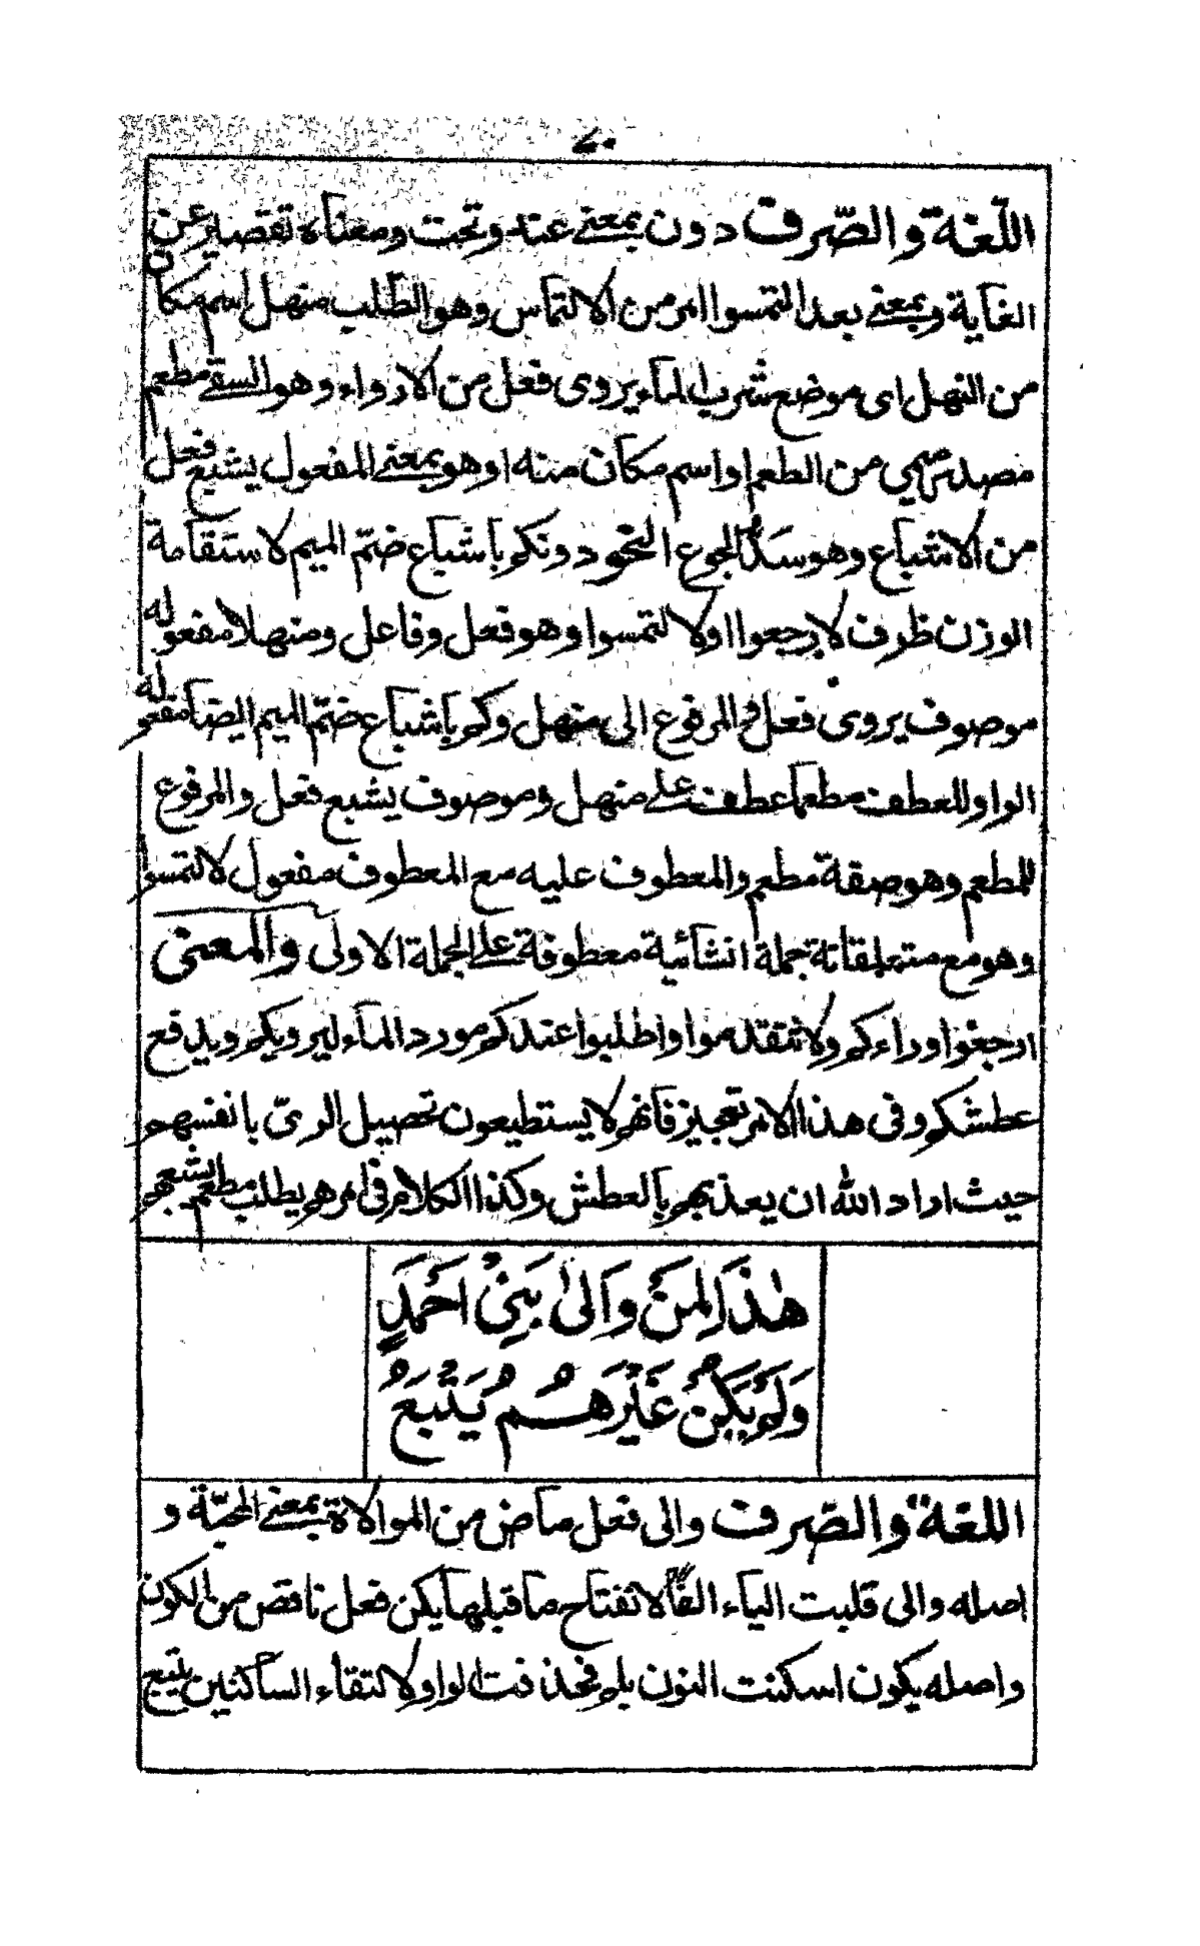 ٧٠
اللّغة والصّرف دون بمعنى عند وتحت ومعناه تقصير عن
الغاية وبمعنى بعد التمسوا امر من الالتماس وهو الطّلب منهل اسم مكان
من النهل اى موضع شرب الماء يروى فعل من الارواء وهو السقى مطعم
مصدر ميمي من الطعم او اسم مكان منه او هو بمعنى المفعول يشبع فعل
من الاشباع وهو سدّ الجوع النحو دونكم باشباع ضمّ الميم لاستقامة
الوزن ظرف لارجعوا او لالتمسوا وهو فعل وفاعل ومنهلا مفعوله
موصوف يروى فعل والمرفوع الى منهل وكم باشباع ضمّ الميم ايضا مفعوله
الواو للعطف مطعما عطف على منهل وموصوف يشبع فعل والمرفوع
للمطعم وهو صفة مطعم والمعطوف عليه مع المعطوف مفعول لالتمسوا
وهو مع متعلقاته جملة انشائية معطوفة على الجملة الاولى والمعنى
ارجعوا وراءكم ولا تتقدموا واطلبوا عندكم مورد الماء ليرويكم ويدفع
عطشكم وفى هذا الامر تعجيز فانهم لا يستطيعون تحصيل الرىّ بانفسهم
حيث اراد الله ان يعذبهم بالعطش وكذا الكلام فى امرهم بطلب مطعم يشبعهم
هٰذَا لِمَنْ وَالىٰ بَنِيْ اَحْمَدٍ
وَلَمْ يَكُنْ غَيْرَهُمُ يَتْبَعُ
اللغة والصّرف والى فعل ماض من الموالاة بمعنى المحبّة و
اصله والى قلبت الياء الفًا لانفتاح ما قبلها يكن فعل ناقص من الكون
واصله يكون اسكنت النون بلم فحذفت الواو لالتقاء الساكنين يتبع